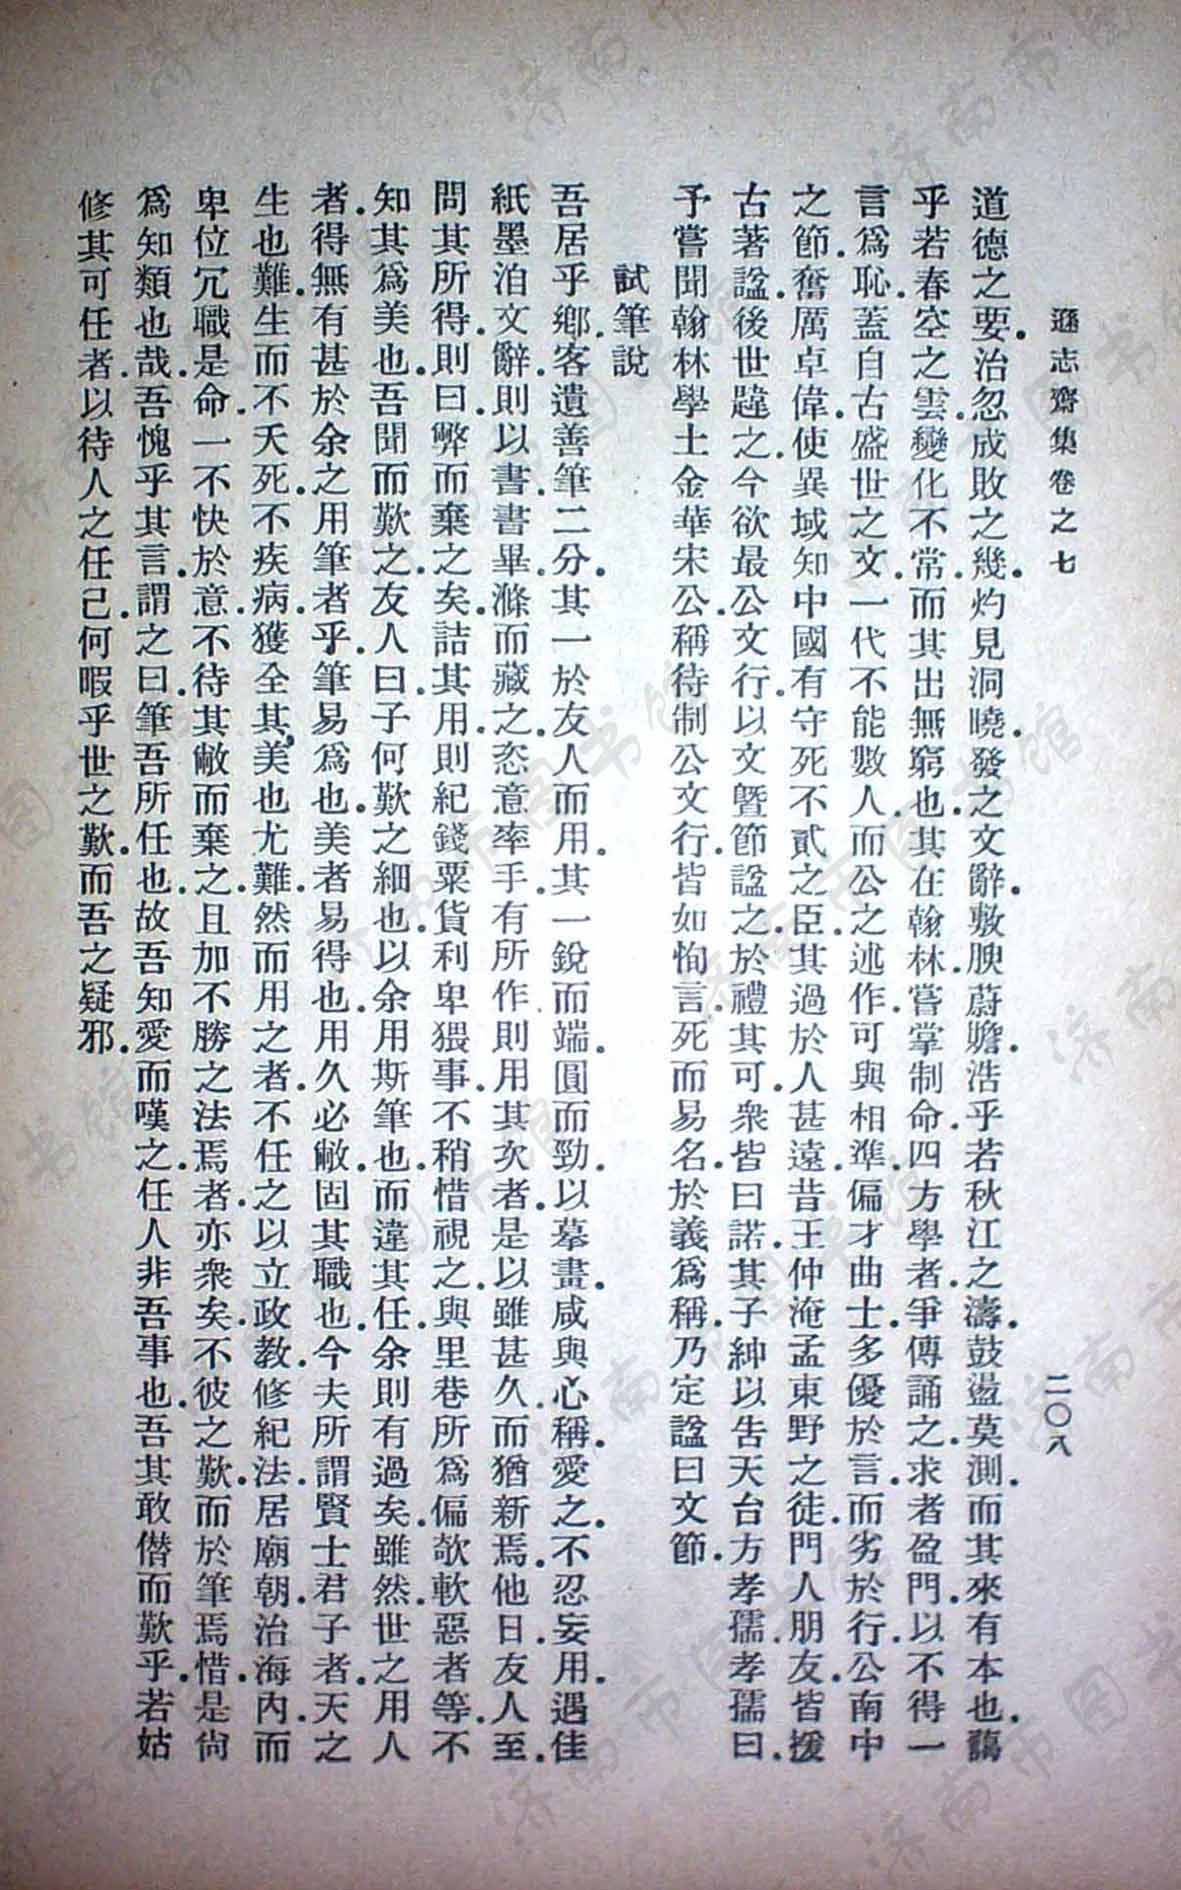 遜志齋集卷之七
二〇八
道德之要．治忽成敗之幾．灼見洞曉．發之文辭．敷腴蔚贍．浩乎若秋江之濤．鼓盪莫測．而其來有本也．藹
乎若春空之雲．變化不常．而其出無窮也．其在翰林．嘗掌制命．四方學者．爭傳誦之．求者盈門．以不得一
言爲恥．蓋自古盛世之文．一代不能數人．而公之述作．可與相準．偏才曲士．多優於言．而劣於行．公南中
之節．奮厲卓偉．使異域知中國有守死不貳之臣．其過於人甚遠．昔王仲淹孟東野之徒．門人朋友．皆援
古著諡．後世韙之．今欲最公文行．以文曁節諡之．於禮其可．衆皆曰諾．其子紳以告天台方孝孺．孝孺曰．
予嘗聞翰林學士金華宋公．稱待制公文行．皆如恂言．死而易名．於義爲稱．乃定諡曰文節．
試筆說
吾居乎鄉．客遺善筆二．分其一於友人．而用其一．銳而端．圓而勁．以摹畫．咸與心稱．愛之．不忍妄用．遇佳
紙墨洎文辭．則以書．書畢．滌而藏之．恣意率手．有所作．則用其次者．是以雖甚久．而猶新焉．他日．友人至．
問其所得．則曰．弊而棄之矣．詰其用．則紀錢粟貨利卑猥事．不稍惜．視之．與里巷所爲偏欹軟惡者等．不
知其爲美也．吾聞而歎之．友人曰．子何歎之細也．以余用斯筆也．而違其任．余則有過矣．雖然．世之用人
者．得無有甚於余之用筆者乎．筆易爲也．美者易得也．用久必敝．固其職也．今夫所謂賢士君子者．天之
生也難．生而不夭死．不疾病．獲全其美也尤難．然而用之者．不任之以立政教．修紀法．居廟朝．治海內．而
卑位冗職是命．一不快於意．不待其敝而棄之．且加不勝之法焉者．亦衆矣．不彼之歎．而於筆焉惜．是尙
爲知類也哉．吾愧乎其言．謂之曰．筆吾所任也．故吾知愛而嘆之．任人非吾事也．吾其敢僭而歎乎．若姑
修其可任者．以待人之任己．何暇乎世之歎．而吾之疑邪．